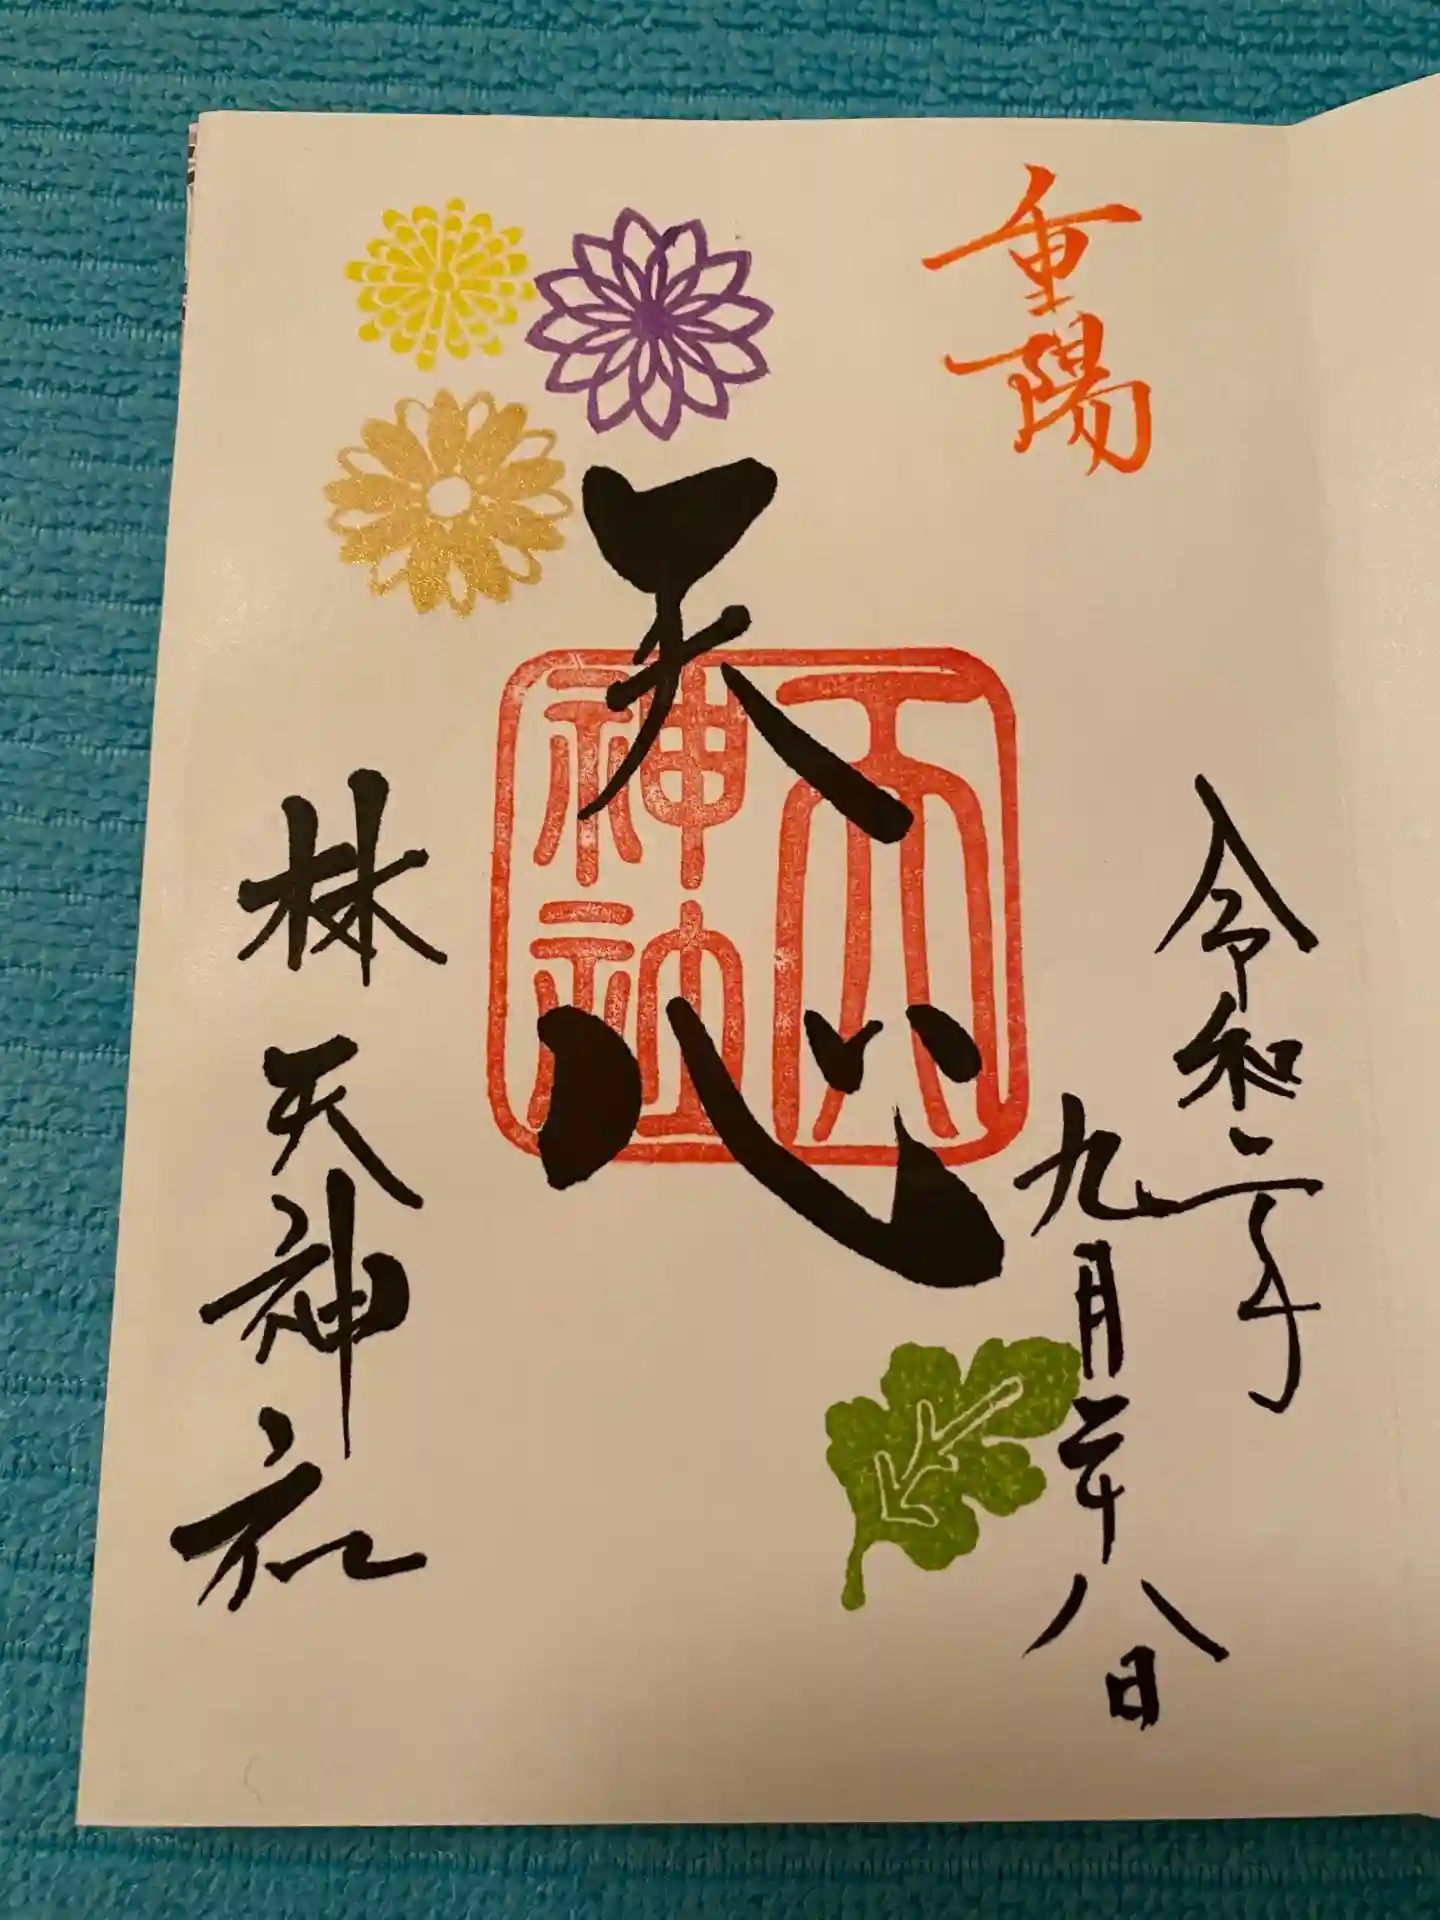 重陽
令和二年
九月二十八日
天心
天神社
林天神社